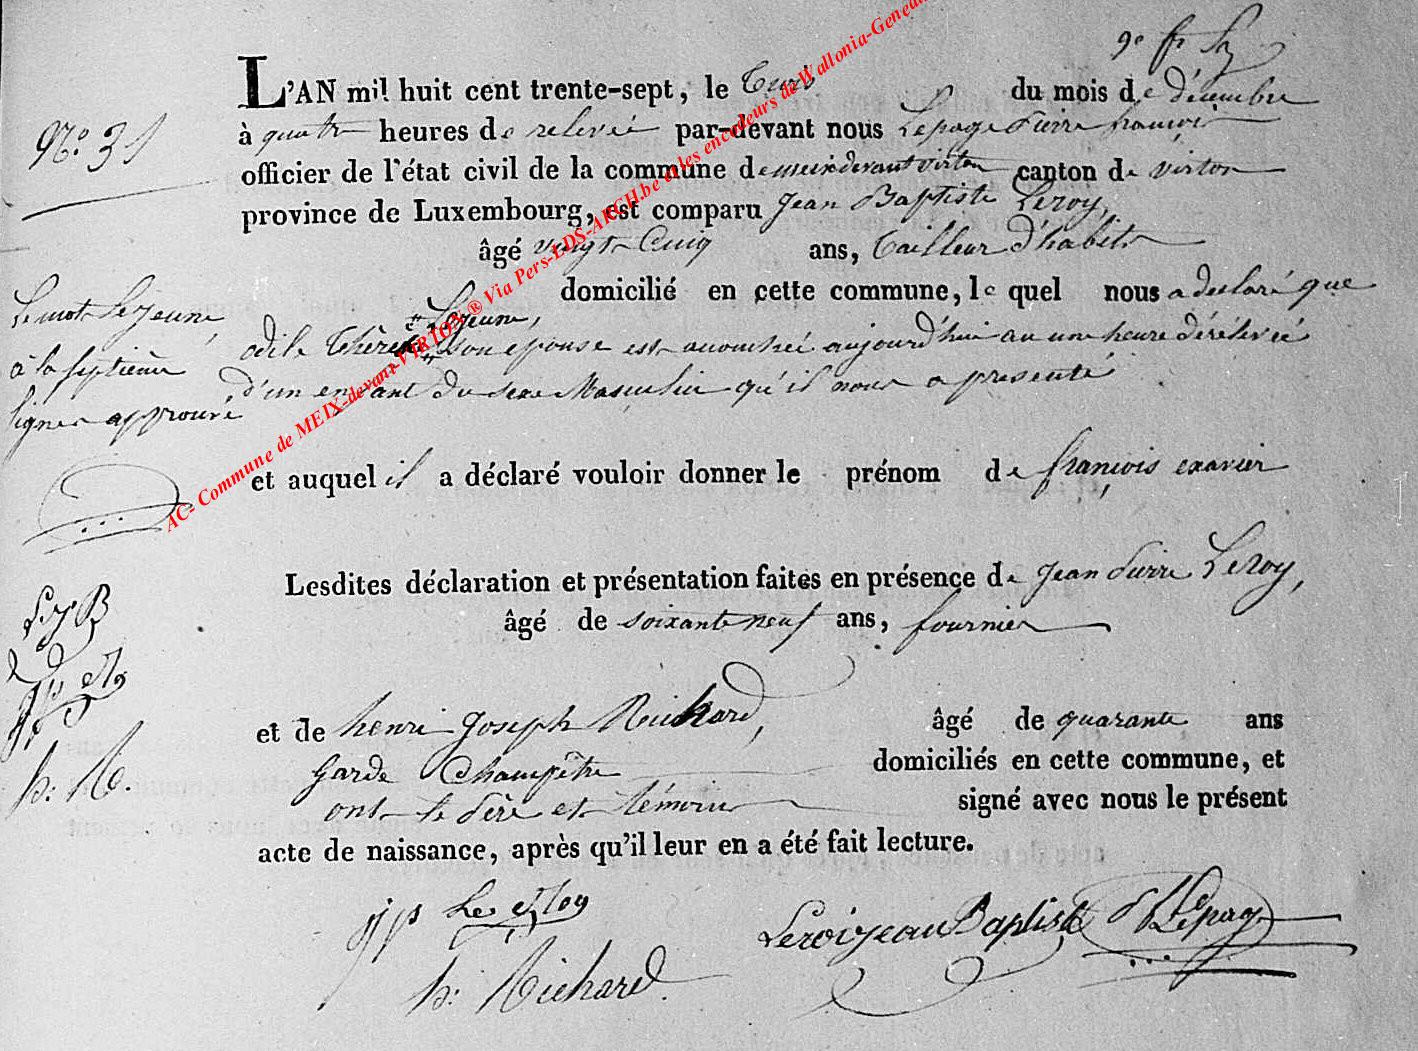 N.° 31
L'AN mil huit cent trente-sept, le trois du mois de décembre
à quatre heures de relevée par-devant nous Lepage Pierre françois
officier de l'état civil de la commune de meix devant virton canton de virton
province de Luxembourg, est comparu Jean Baptiste Leroy,
âgé vingt cinq ans, tailleur d'habits
domicilié en cette commune, le quel nous a déclaré que
Lejeune,
odile thérèse son épouse est accouchée aujourd'hui au une heure dérélevée
d'un enfant du sexe Masculin qu'il nous a présenté
Le mot Lejeune,
à la septième
ligne approuvé
et auquel il a déclaré vouloir donner le prénom de françois exavier
Lesdites déclaration et présentation faites en présence de Jean Pierre Leroy,
âgé de soixante neuf ans, fournier
et de henri Joseph Richard, âgé de quarante ans
garde Champêtre domiciliés en cette commune, et
ont le père et témoins signé avec nous le présent
acte de naissance, après qu'il leur en a été fait lecture.
L J B
h: R
jp Le Roy
Leroi jean Baptiste
Lepage
h: Richard.
AC- Commune de MEIX-devant-VIRTON ® Via Pers-LDS-ARCH.be et les encodeurs de Wallonia-Geneal